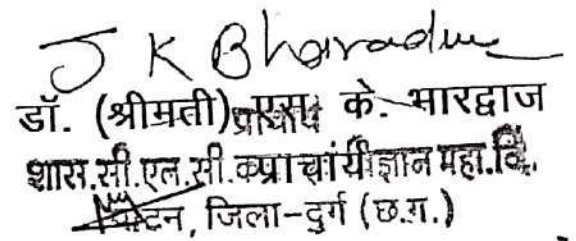 J K Bharadwaj
डॉ. (श्रीमती) एस. के. भारद्वाज
प्राचार्य
शास.सी.एल.सी. महा.वि.
पाटन, जिला-दुर्ग (छ.ग.)